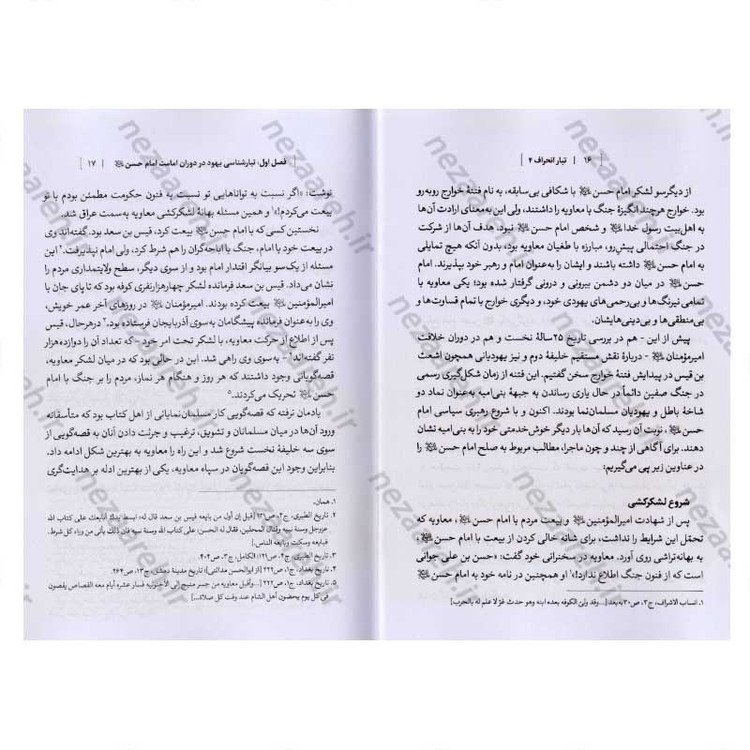 ۱۶ | تبار انحراف ۴
از دیگرسو لشکر امام حسن با شکافی بی‌سابقه، به نام فتنهٔ خوارج روبه‌رو
بود. خوارج هرچند انگیزهٔ جنگ با معاویه را داشتند، ولی این به‌معنای ارادت آن‌ها
به اهل‌بیت رسول خدا و شخص امام حسن نبود. هدف آن‌ها از شرکت
در جنگ احتمالی پیش‌رو، مبارزه با طغیان معاویه بود، بدون آنکه هیچ تمایلی
به امام حسن داشته باشند و ایشان را به‌عنوان امام و رهبر خود بپذیرند. امام
حسن در میان دو دشمن بیرونی و درونی گرفتار شده بود؛ یکی معاویه با
تمامی نیرنگ‌ها و بی‌رحمی‌های یهودی خود، و دیگری خوارج با تمام قساوت‌ها و
بی‌منطقی‌ها و بی‌دینی‌هایشان.
پیش از این - هم در بررسی تاریخ ۲۵سالهٔ نخست و هم در دوران خلافت
امیرمؤمنان - دربارهٔ نقش مستقیم خلیفهٔ دوم و نیز یهودیانی همچون اشعث
بن قیس در پیدایش فتنهٔ خوارج سخن گفتیم. این فتنه از زمان شکل‌گیری رسمی
در جنگ صفین دائماً در حال یاری رساندن به جبههٔ بنی‌امیه به‌عنوان نماد دو
شاخهٔ باطل و یهودیان مسلمان‌نما بودند. اکنون و با شروع رهبری سیاسی امام
حسن، نوبت آن رسید که آن‌ها بار دیگر خوش‌خدمتی خود را به بنی‌امیه نشان
دهند. برای آگاهی از چند و چون ماجرا، مطالب مربوط به صلح امام حسن را
در عناوین زیر پی می‌گیریم:
شروع لشکرکشی
پس از شهادت امیرالمؤمنین و بیعت مردم با امام حسن، معاویه که
تحمّل این شرایط را نداشت، برای شانه خالی کردن از بیعت با امام حسن
به بهانه‌تراشی روی آورد. معاویه در سخنرانی خود گفت: «حسن بن علی جوانی
است که از فنون جنگ اطلاع ندارد!»۱ او همچنین در نامه خود به امام حسن
۱. انساب الاشراف، ج۳، ص۳۰به‌بعد [...وقد ولیّ الکوفه بعده ابنه وهو حدث غرّ لا علم له بالحرب]
فصل اول: تبارشناسی یهود در دوران امامت امام حسن | ۱۷
نوشت: «اگر نسبت به توانا‌هایی تو نسبت به فنون حکومت مطمئن بودم با تو
بیعت می‌کردم!»۱ و همین مسئله بهانهٔ لشکرکشی معاویه به‌سمت عراق شد.
نخستین کسی که با امام حسن بیعت کرد، قیس بن سعد بود. گفته‌اند وی
در بیعت خود با امام، جنگ با اباحه‌گران را هم شرط کرد، ولی امام نپذیرفت.۲ این
مسئله از یک‌سو بیانگر اقتدار امام بود و از سوی دیگر، سطح ولایتمداری مردم را
نشان می‌داد. قیس بن سعد فرمانده لشکری چهارهزارنفری کوفه بود که تا پای جان با
امیرالمؤمنین بیعت کرده بودند. امیرمؤمنان در روزهای آخر عمر خویش،
وی را به‌عنوان فرمانده پیشگامان به‌سوی آذربایجان فرستاده بود.۳ درهرحال، قیس
پس از اطلاع از حرکت معاویه، با لشکر تحت امر خود - که تعداد آن را دوازده‌هزار
نفر گفته‌اند۴ - به‌سوی وی راهی شد. این در حالی بود که در میان لشکر معاویه،
قصه‌گویانی وجود داشتند که هر روز و هنگام هر نماز، مردم را بر جنگ با امام
حسن تحریک می‌کردند.۵
یادمان نرفته که قصه‌گویی کار مسلمان‌نمایانی از اهل کتاب بود که متأسفانه
ورود آن‌ها در میان مسلمانان و تشویق، ترغیب و جرئت دادن آنان به قصه‌گویی از
سوی سه خلیفهٔ نخست شروع شد و این راه را معاویه به بهترین شکل ادامه داد.
بنابراین وجود این قصه‌گویان در سپاه معاویه، یکی از بهترین ادله بر هدایت‌گری
۱. همان.
۲. تاریخ الطبری، ج۳، ص [قیل إن أول من بایعه قیس بن سعد قال له: ابسط یدك أبایعك علی کتاب الله
عزوجل وسنة نبیه وقتال المحلین. فقال له الحسن: علی کتاب الله وسنة نبیه فإن ذلك یأتی من وراء کل شرط.
فبایعه وسکت وبایعه الناس]
۳. تاریخ الطبری، ج۴، ص۱۲۱؛ الکامل، ج۳، ص۴۰۴.
۴. تاریخ بغداد، ج۱، ص۲۲۲ [از ابوالحسن مدائنی]؛ تاریخ مدینة دمشق، ج۱۳، ص۲۶۴.
۵. تاریخ بغداد، ج۱، ص۲۲۲ [...وأقبل معاویه من جسر منبج إلی الأخنونیه فسار عشره أیام معه القصاص یقصون
فی کل یوم یحضون أهل الشام عند وقت کل صلاة...]
nezaareh.ir